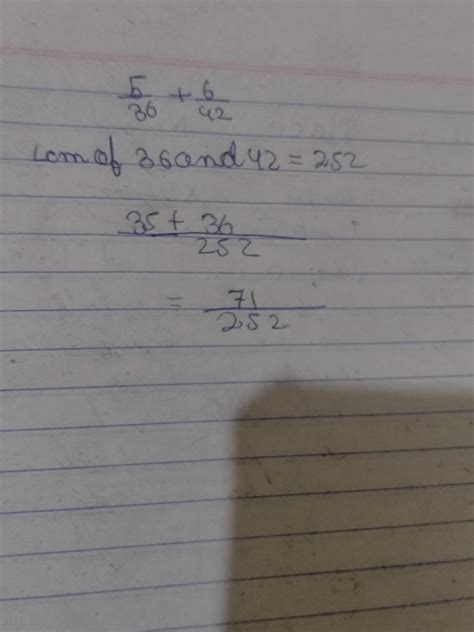 5/36 + 6/42
Lcm of 36 and 42 = 252
35 + 36 / 252
= 71 / 252